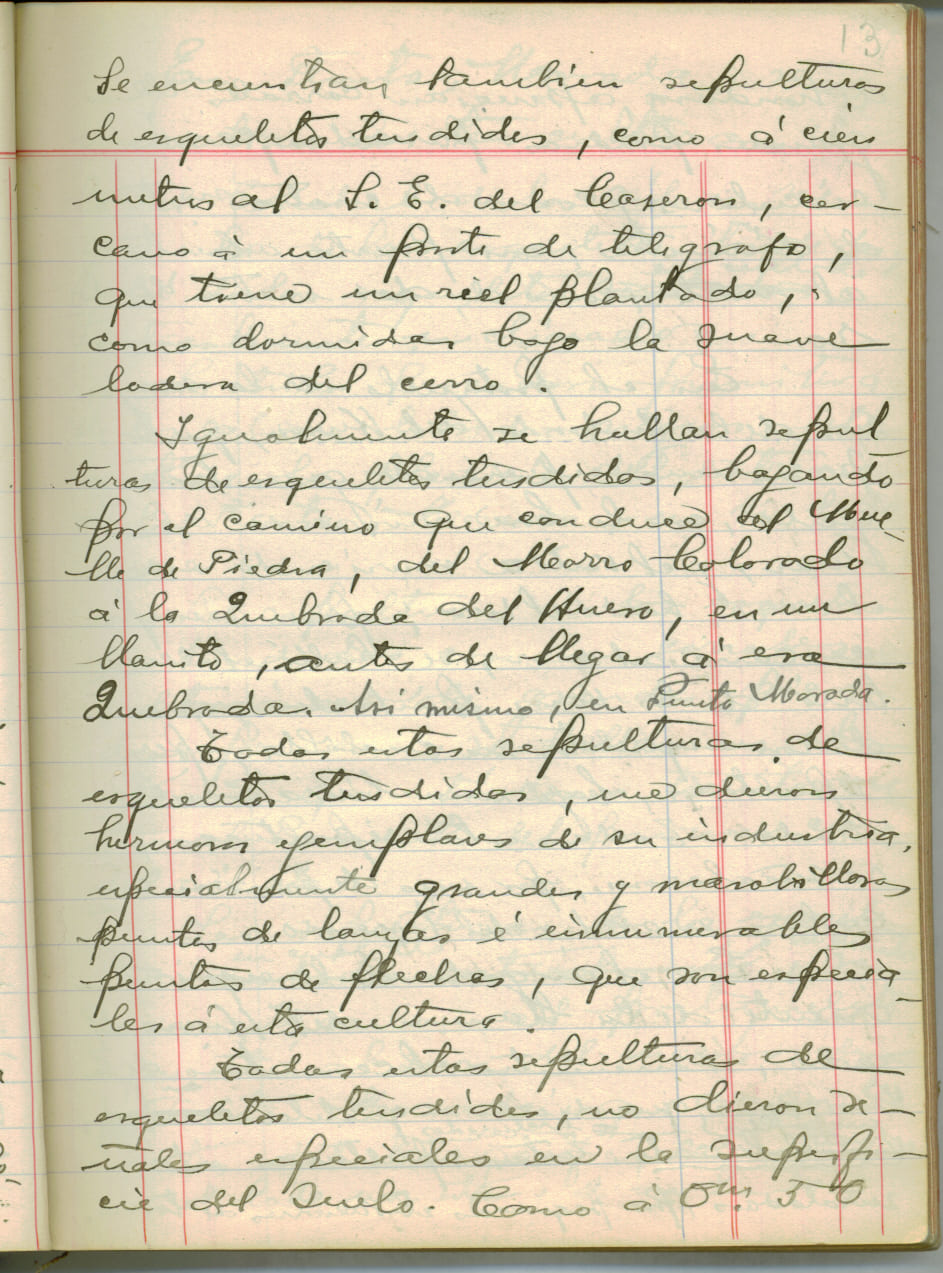 13
Se encuentran tambien sepulturas
de esqueletos tendidos, como á cien
metros al S. E. del Caseron, cer-
cano á un poste de telegrafo,
que tiene un riel plantado,
como dormidas bajo la suave
ladera del cerro.
Igualmente se hallan sepul
turas de esqueletos tendidos, bajando
por el camino que conduce del Mue-
lle de Piedra, del Morro Colorado
á la Quebrada del Hueso, en un
llanito, antes de llegar á esa
Quebrada. Asi mismo, en Punta Morada.
Todas estas sepulturas de
esqueletos tendidos, me dieron
hermosos ejemplares de su industria,
especialmente grandes y marabillosas
puntas de lanzas é innumerables
puntas de flechas, que son especia-
les á esta cultura.
Todas estas sepulturas de
esqueletos tendidos, no dieron se-
ñales especiales en la superfi-
cie del suelo. Como á 0m. 50